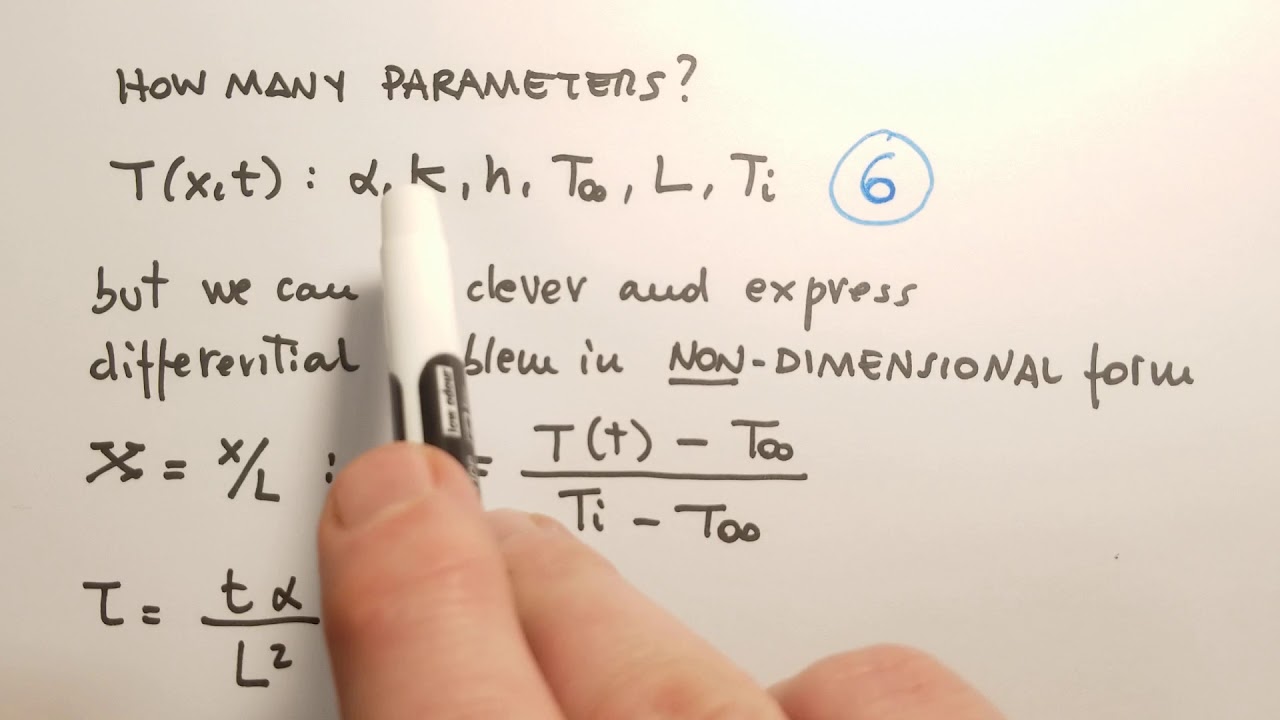 HOW MANY PARAMETERS?
T(x,t) : α, k, h, T∞, L, Ti 6
but we can clever and express
differential blem in NON-DIMENSIONAL form
X = x/L : = T(t) - T∞ / Ti - T∞
τ = t α / L²